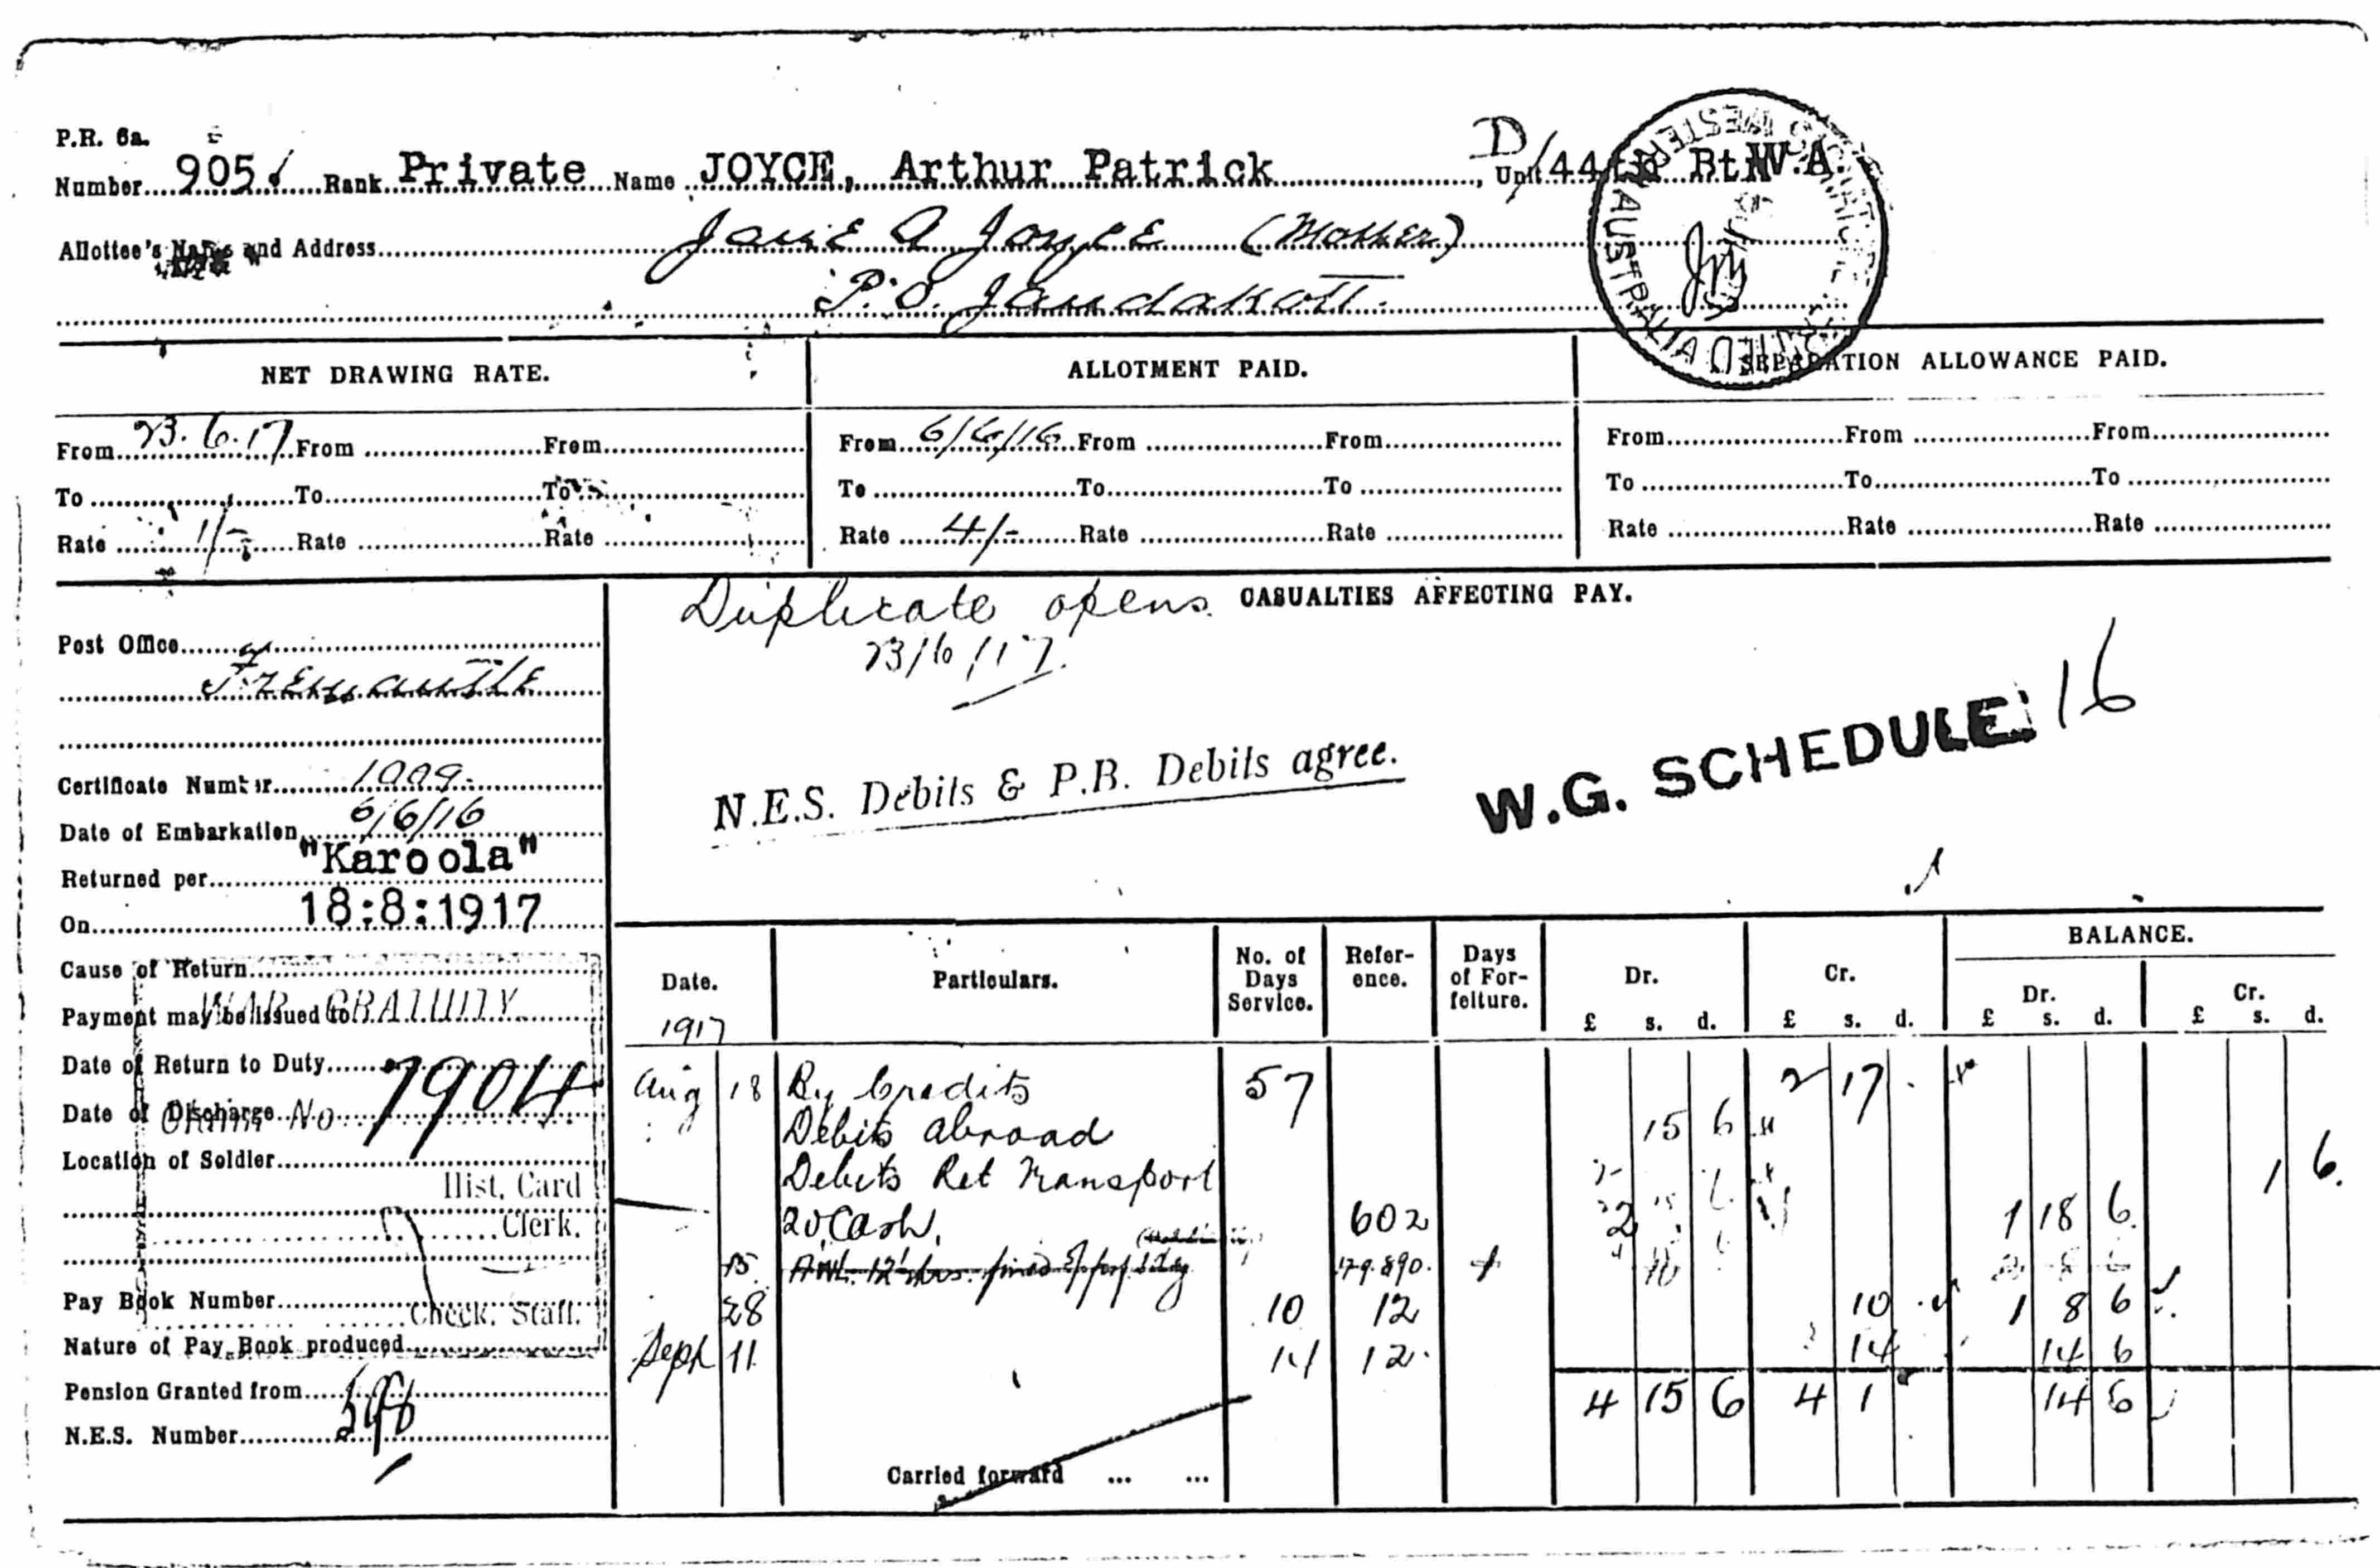 P.R. 6a.
Number 905 Rank Private Name JOYCE, Arthur Patrick, Unit D/44th Btn W.A.
Allottee's Name and Address Jane A Joyce (Mother)
P.O. Jandakott.
NET DRAWING RATE. ALLOTMENT PAID. SEPARATION ALLOWANCE PAID.
From 23.6.17 From From From 6/6/16 From From From From From
To To To To To To To To To
Rate 1/- Rate Rate Rate 4/- Rate Rate Rate Rate Rate
Duplicate opens CASUALTIES AFFECTING PAY.
23/6/17.
Post Office
Fremantle
W.G. SCHEDULE 16
N.E.S. Debits & P.B. Debits agree.
Certificate Number
Date of Embarkation 6/6/16
Returned per "Karoola"
On 18:8:1917
Cause of Return
Payment may be issued to
WAR GRATUITY
Date of Return to Duty
Date of Discharge
No 7904
Location of Soldier
Hist. Card
Clerk.
Pay Book Number
Check. Staff.
Nature of Pay Book produced
Pension Granted from
N.E.S. Number
Date. Particulars. No. of Days Service. Reference. Days of Forfeiture. Dr. Cr. BALANCE.
Dr. Cr.
£ s. d. £ s. d. £ s. d. £ s. d.
1917
Aug 18 By Credits 57 2 17
Debits abroad 15 6
Debits Ret Transport 1 6.
20 Cash. 602 2 1 18 6
15. AWL. 12 hrs. 10
28 10 12 10 1 8 6
Sept 11 14 12 14 14 6
4 15 6 4 1 14 6
Carried forward ... ...